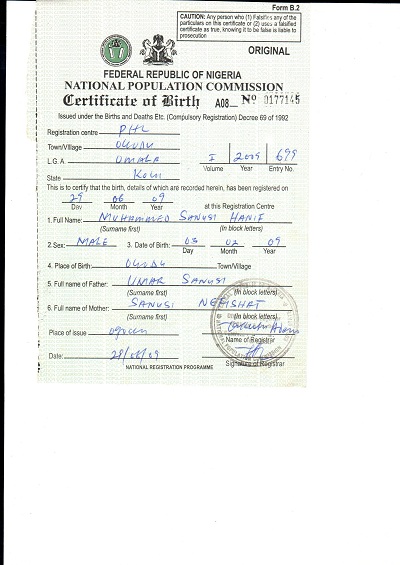 Form B.2
CAUTION: Any person who (1) Falsifies any of the
particulars on this certificate or (2) uses a falsified
certificate as true, knowing it to be false is liable to
prosecution
ORIGINAL
FEDERAL REPUBLIC OF NIGERIA
NATIONAL POPULATION COMMISSION
Certificate of Birth A08 Nº 0177145
Issued under the Births and Deaths Etc. (Compulsory Registration) Decree 69 of 1992
Registration centre PHC
Town/Village
L.G.A. OMALA I 2009 699
Volume Year Entry No.
State KOGI
This is to certify that the birth, details of which are recorded herein, has been registered on
29 06 09
Day Month Year at this Registration Centre
1. Full Name: MUHAMMED SANUSI HANIF
(Surname first) (In block letters)
2. Sex: MALE 3. Date of Birth: 03 02 09
Day Month Year
4. Place of Birth: Town/Village
5. Full name of Father: UMAR SANUSI
(Surname first) (In block letters)
6. Full name of Mother: SANUSI NEFISHAT
(Surname first) (In block letters)
Place of issue
Name of Registrar
Date:
Signature of Registrar
NATIONAL REGISTRATION PROGRAMME